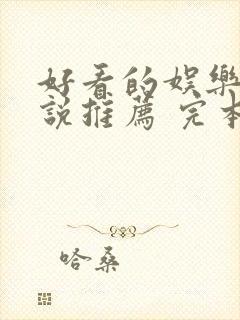 好看的娱樂
說推薦 完本
哈桑